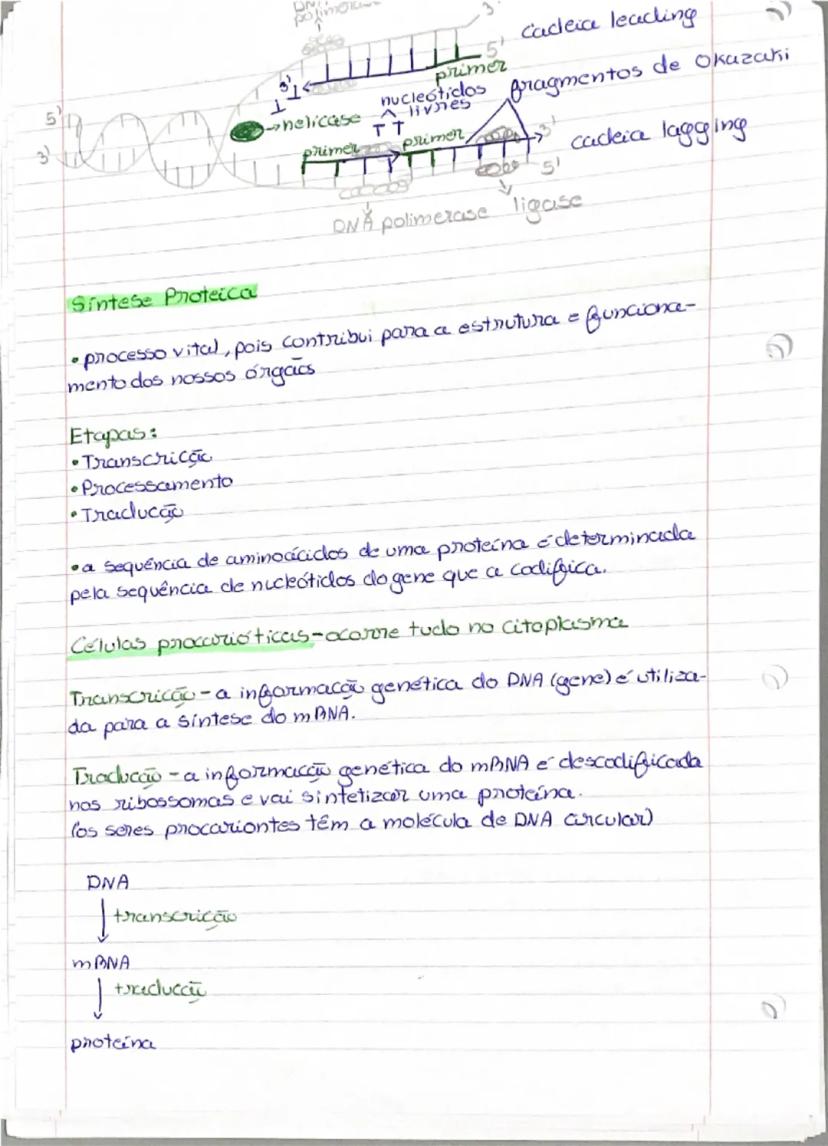 DNA
polimerase
3'
cadeia leading
5'
primer
3'
nucleótidos
livres
fragmentos de Okazaki
5'
helicase
3'
primer
primer
3'
cadeia lagging
5'
DNA polimerase
ligase
Síntese Proteica
• processo vital, pois contribui para a estrutura e funciona-
mento dos nossos órgãos
Etapas:
• Transcrição
• Processamento
• Tradução
• a sequência de aminoácidos de uma proteína é determinada
pela sequência de nucleótidos do gene que a codifica.
Células procarióticas - ocorre tudo no citoplasma
Transcrição - a informação genética do DNA (gene) é utiliza-
da para a síntese do mRNA.
Tradução - a informação genética do mRNA é descodificada
nos ribossomas e vai sintetizar uma proteína.
(os seres procariontes têm a molécula de DNA circular)
DNA
transcrição
mRNA
tradução
proteína